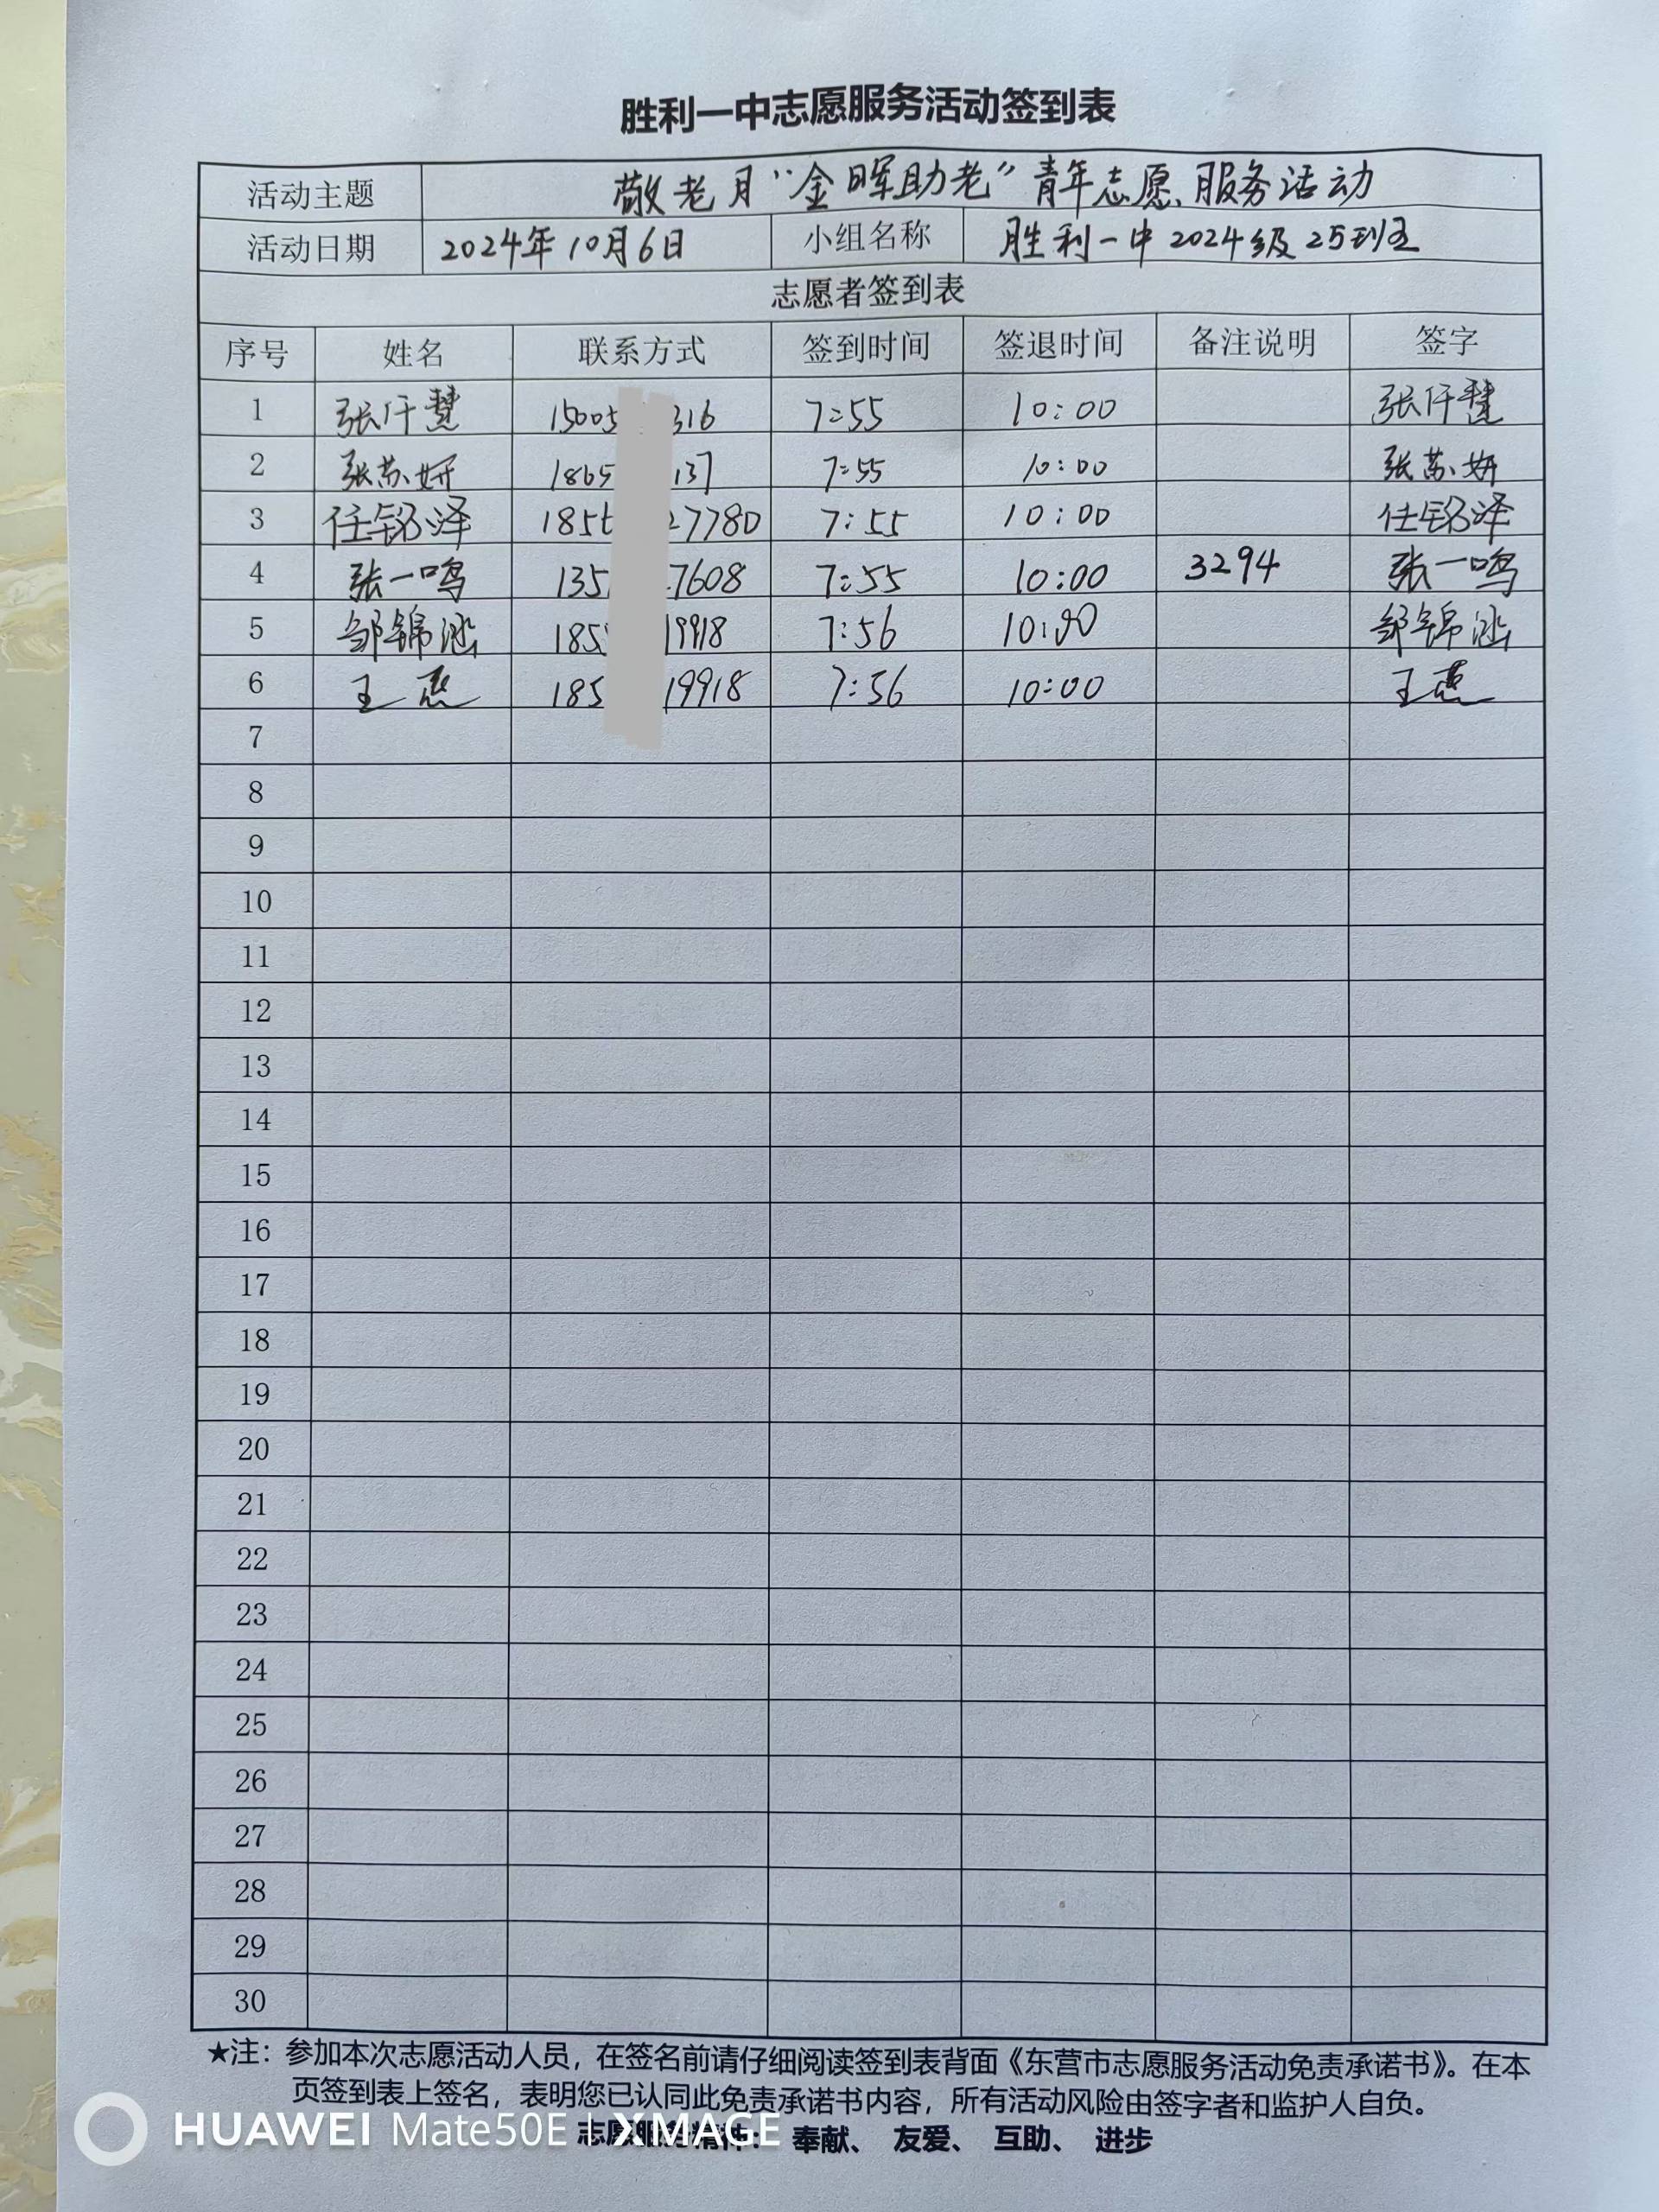 胜利一中志愿服务活动签到表
活动主题 敬老月“金晖助老”青年志愿服务活动
活动日期 2024年10月6日 小组名称 胜利一中2024级25班
志愿者签到表
序号 姓名 联系方式 签到时间 签退时间 备注说明 签字
1 张仟慧 15005 316 7:55 10:00 张仟慧
2 张苏妍 1865 137 7:55 10:00 张苏妍
3 任铭泽 185 27780 7:55 10:00 任铭泽
4 张一鸣 135 7608 7:55 10:00 3294 张一鸣
5 邹锦涵 185 19918 7:56 10:00 邹锦涵
6 王 185 19918 7:56 10:00 王
7
8
9
10
11
12
13
14
15
16
17
18
19
20
21
22
23
24
25
26
27
28
29
30
★注：参加本次志愿活动人员，在签名前请仔细阅读签到表背面《东营市志愿服务活动免责承诺书》。在本
页签到表上签名，表明您已认同此免责承诺书内容，所有活动风险由签字者和监护人自负。
志愿服务精神： 奉献、 友爱、 互助、 进步
HUAWEI Mate50E | XMAGE